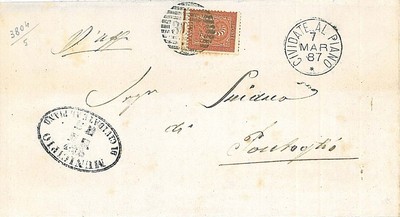 3806
5
CIVIDATE AL PIANO
7
MAR
87
Sindaco
di
Pontoglio
MUNICIPIO
DI CIVIDATE AL PIANO